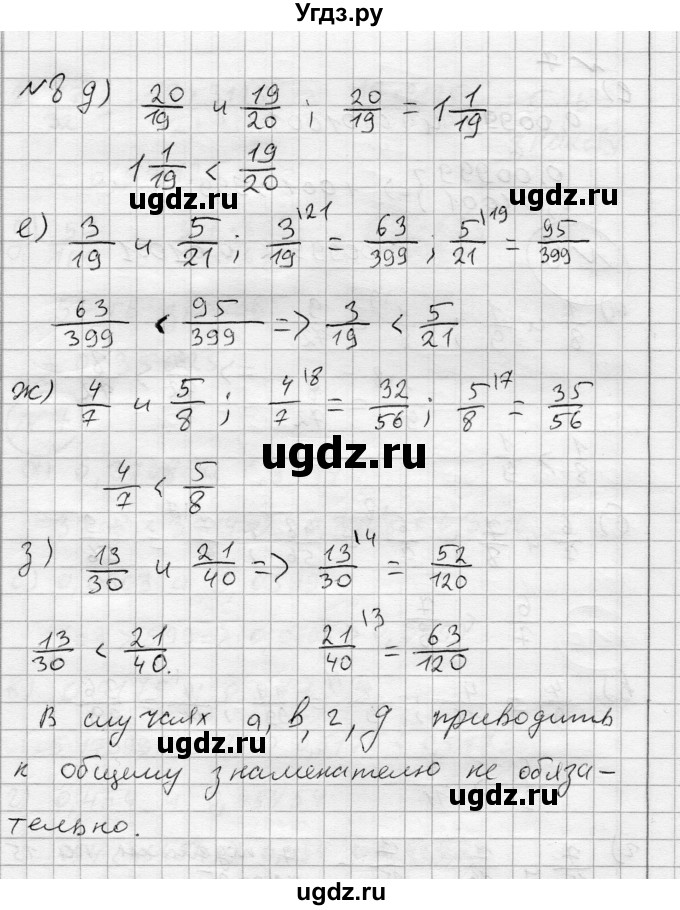 Угдз.ру
№8 д) 20/19 и 19/20 ; 20/19 = 1 1/19
1 1/19 < 19/20
ugdz.ru ugdz.ru
е) 3/19 и 5/21 ; 3/19 \21 = 63/399 ; 5/21 \19 = 95/399
63/399 < 95/399 => 3/19 < 5/21
ugdz.ru ugdz.ru
ж) 4/7 и 5/8 ; 4/7 \8 = 32/56 ; 5/8 \7 = 35/56
ugdz.ru
4/7 < 5/8
ugdz.ru
з) 13/30 и 21/40 => 13/30 \4 = 52/120
13/30 < 21/40. 21/40 \3 = 63/120
В случаях а, в, г, д приводить
ugdz.ru
к общему знаменателю не обяза-
ugdz.ru
тельно.
ugdz.ru